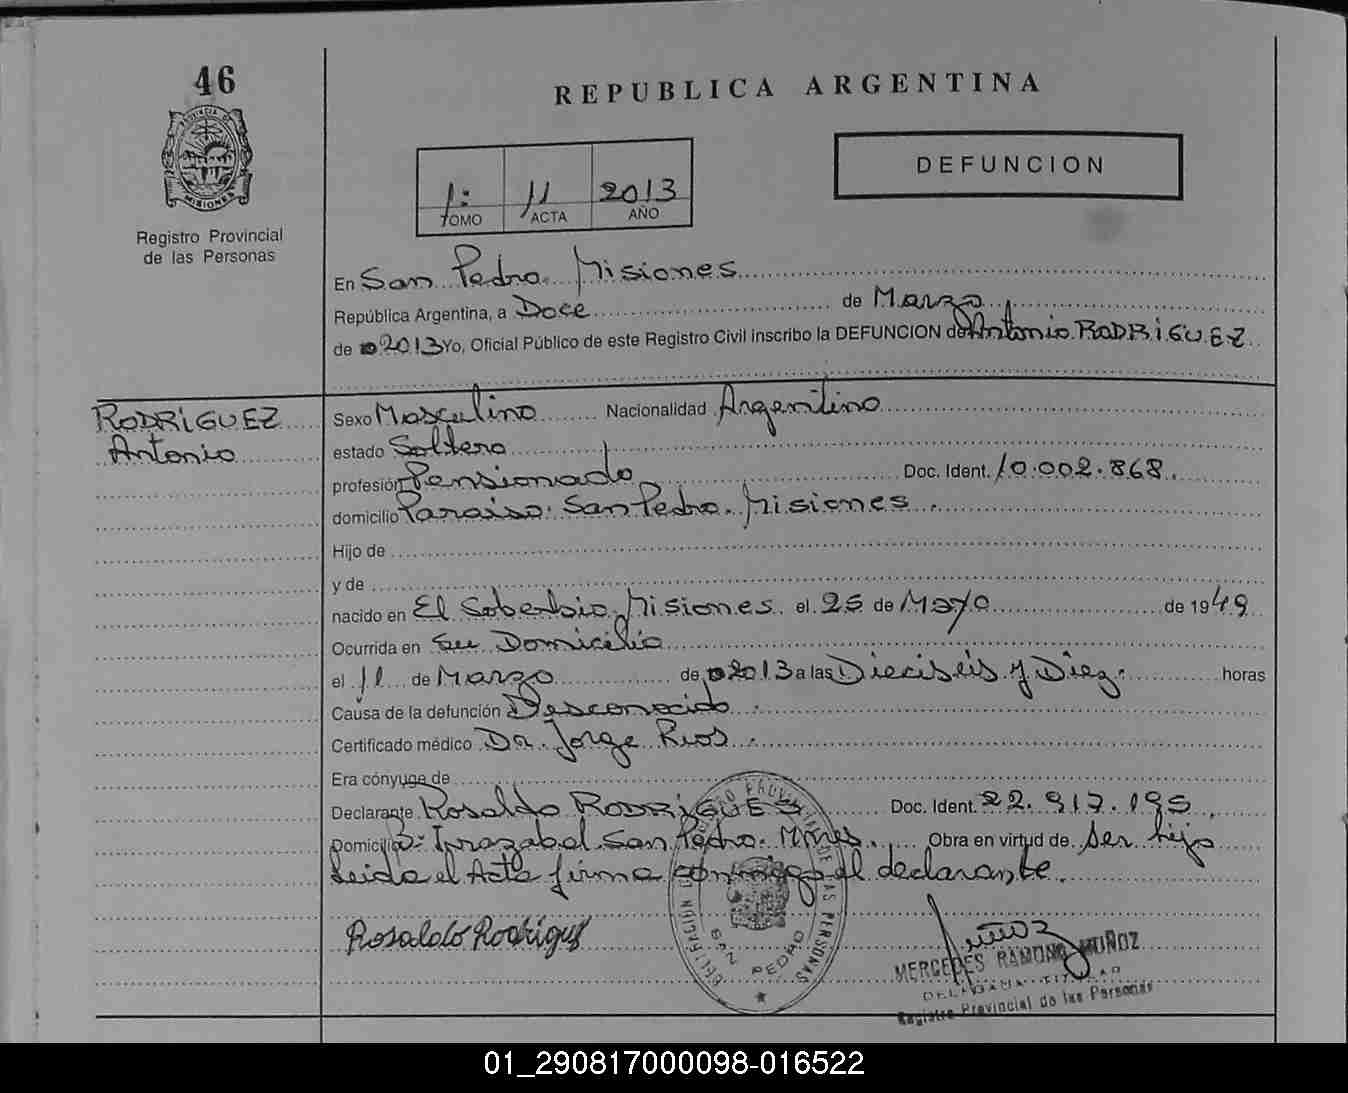 46
REPUBLICA ARGENTINA
PROVINCIA DE
MISIONES
Registro Provincial
de las Personas
DEFUNCION
1: 11 2013
TOMO ACTA AÑO
En San Pedro. Misiones
República Argentina, a Doce de Marzo
de 2013 Yo, Oficial Público de este Registro Civil inscribo la DEFUNCION de Antonio RODRIGUEZ
RODRIGUEZ
Antonio
Sexo Masculino Nacionalidad Argentino
estado Soltero
profesión Pensionado Doc. Ident. 10.002.868.
domicilio Paraiso. San Pedro. Misiones.
Hijo de
y de
nacido en El Soberbio. Misiones. el 25 de Mayo de 1949
Ocurrida en Su Domicilio
el 11 de Marzo de 2013 a las Dieciseis y Diez. horas
Causa de la defunción Desconocido.
Certificado médico Dr. Jorge Rios.
Era cónyuge de
Declarante Rosaldo RODRIGUES Doc. Ident. 22.917.195
Domicilio B: Irrazabal San Pedro. Mnes. Obra en virtud de ser hijo
Leida el Acta firma conmigo el declarante.
Rosaldo Rodrigues
Muñoz
MERCEDES RAMONA MUÑOZ
DELEGADA TITULAR
Registro Provincial de las Personas
SAN PEDRO
01_290817000098-016522